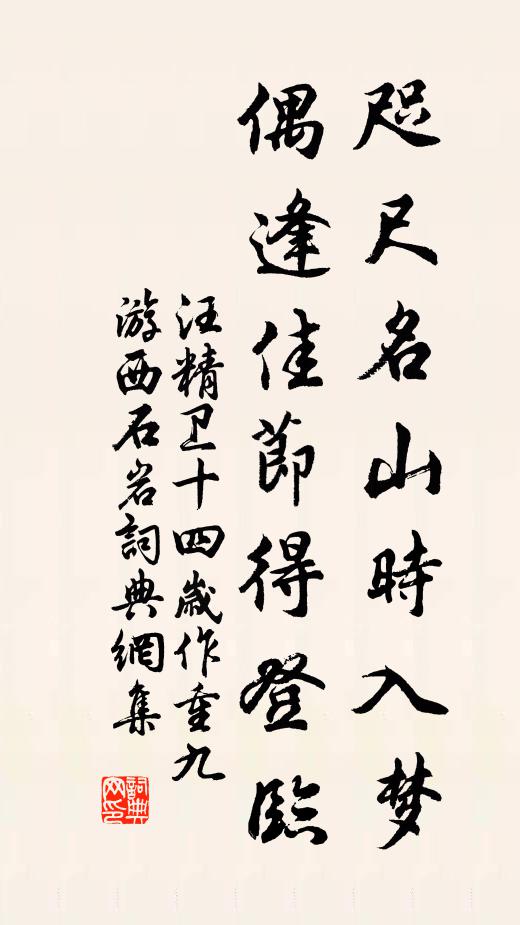 咫尺名山時入梦
偶逢佳節得登臨
汪精卫十四歲作重九
游西石岩詞典網集
詞典网印